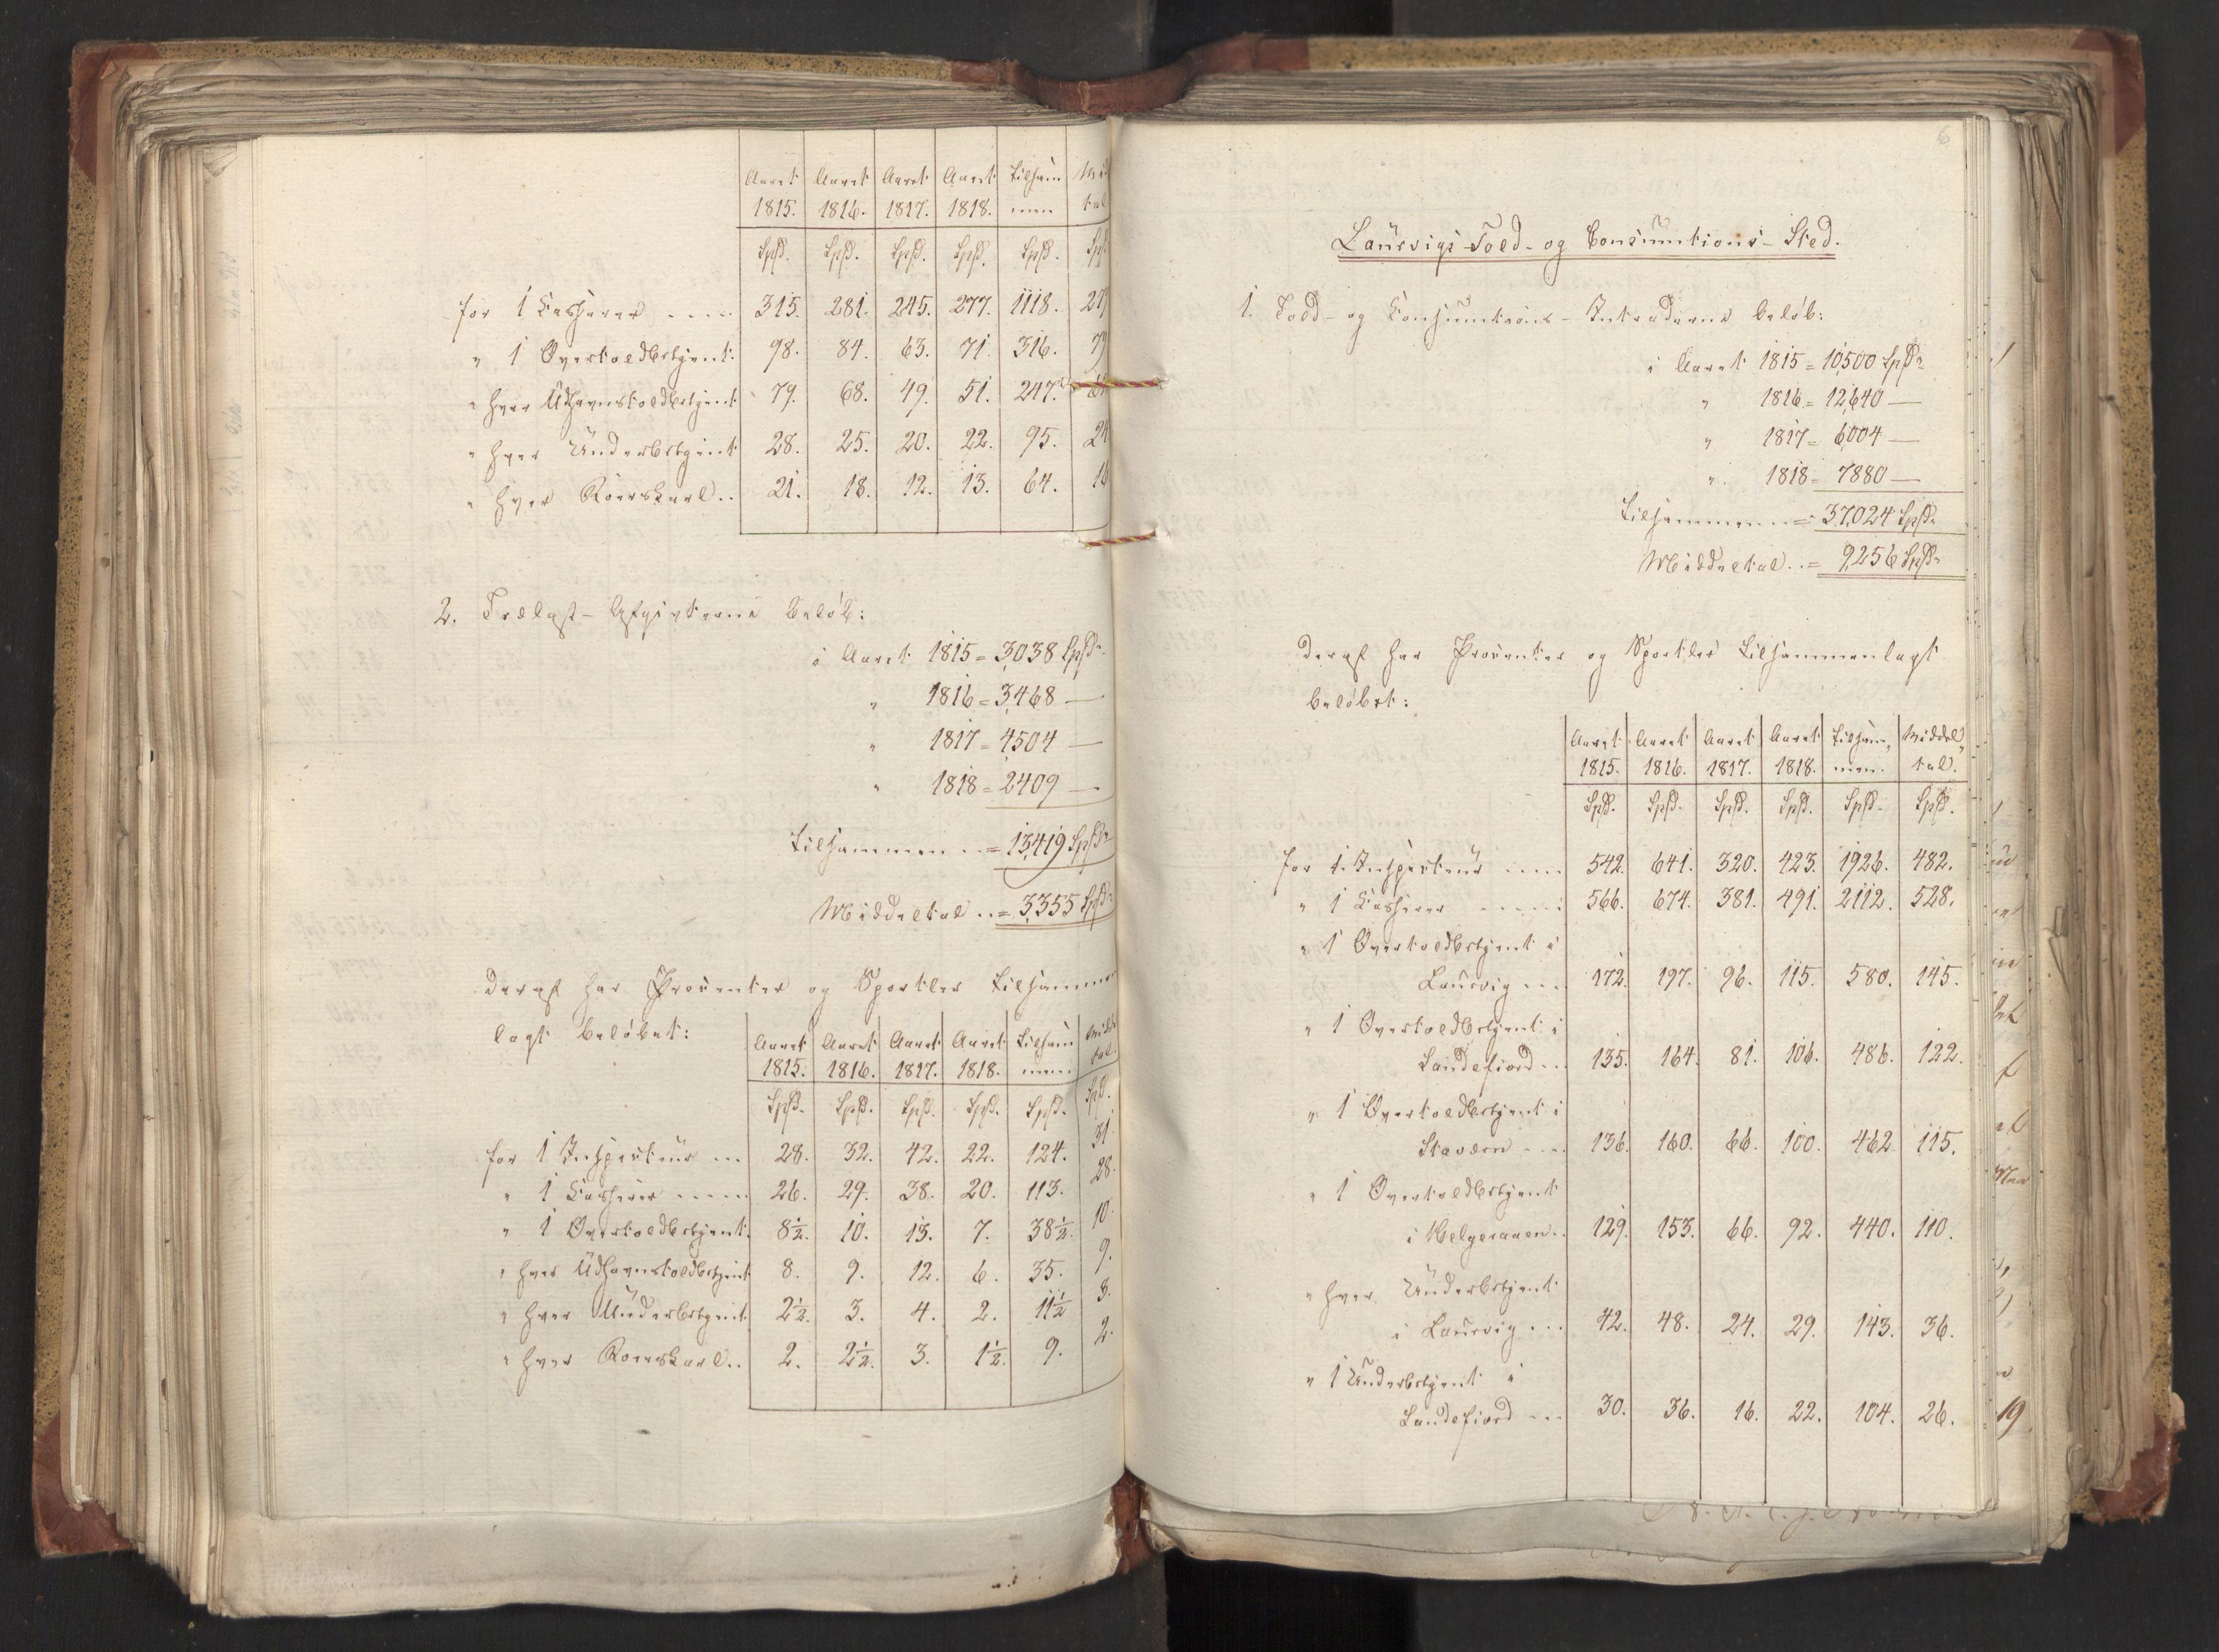 Aaret Aaret Aaret Aaret Tilsam
1815. 1816. 1817. 1818. men
Spd. Spd. Spd. Spd. Spd.
for 1 Casserer .... 315. 281. 245. 277. 1118.
" 1 Overtoldbetjent. 98. 84. 63. 71. 316.
" hver Udhavnstoldbetjent 79. 68. 49. 51. 247.
" hver Underbetjent 28. 25. 20. 22. 95. 24
" hver Roerskarl.. 21. 18. 12. 13. 64. 16
2. Trælast-Afgivterne beløb:
i Aaret 1815 = 3,038 Spdr
" 1816 = 3,468 —
" 1817 = 4504 —
" 1818 = 2409 —
Tilsammen .. = 13,419 Spdr
Middeltal .. = 3,355 Spdr
Deraf har Procenter og Sportler tilsammen
lagt beløbet:
Aaret Aaret Aaret Aaret Tilsam Midl
1815. 1816. 1817. 1818. men tal.
Spd. Spd. Spd. Spd. Spd. Spd.
for 1 Inspecteur ... 28. 32. 42. 22. 124. 31.
" 1 Casserer ..... 26. 29. 38. 20. 113. 28.
" 1 Overtoldbetjent. 8½. 10. 13. 7. 38½. 10.
" hver Udhavnstoldbetjent 8. 9. 12. 6. 35. 9.
" hver Underbetjent 2½. 3. 4. 2. 11½ 3.
" hver Roerskarl.. 2. 2½. 3. 1½. 9. 2.
6
Laurvigs Told- og Consumtions-Sted.
1. Told- og Consumtions-Intraderne beløb:
i Aaret 1815 = 10,500 Spdr
" 1816 = 12,640 —
" 1817 = 6,004 —
" 1818 = 7880 —
Tilsammen = 37,024 Spdr
Middeltal .. = 9,256 Spdr
Deraf har Procenter og Sportler tilsammenlagt
beløbet:
Aaret Aaret Aaret Aaret Tilsam, Middel
1815. 1816. 1817. 1818. men. tal.
Spd. Spd. Spd. Spd. Spd. Spd.
for 1 Inspecteur .... 542. 641. 320. 423. 1926. 482.
" 1 Casserer ..... 566. 674. 381. 491. 2112. 528.
" 1 Overtoldbetjent i
Laurvig ... 172. 197. 96. 115. 580. 145.
" 1 Overtoldbetjent i
Sandefiord .. 135. 164. 81. 106. 486. 122.
" 1 Overtoldbetjent i
Stavern ... 136. 160. 66. 100. 462. 115.
" 1 Overtoldbetjent
i Helgeraaen.. 129. 153. 66. 92. 440. 110.
" hver Underbetjent
i Laurvig ... 42. 48. 24. 29. 143. 36.
" 1 Underbetjent i
Sandefiord ... 30. 36. 16. 22. 104. 26.
19